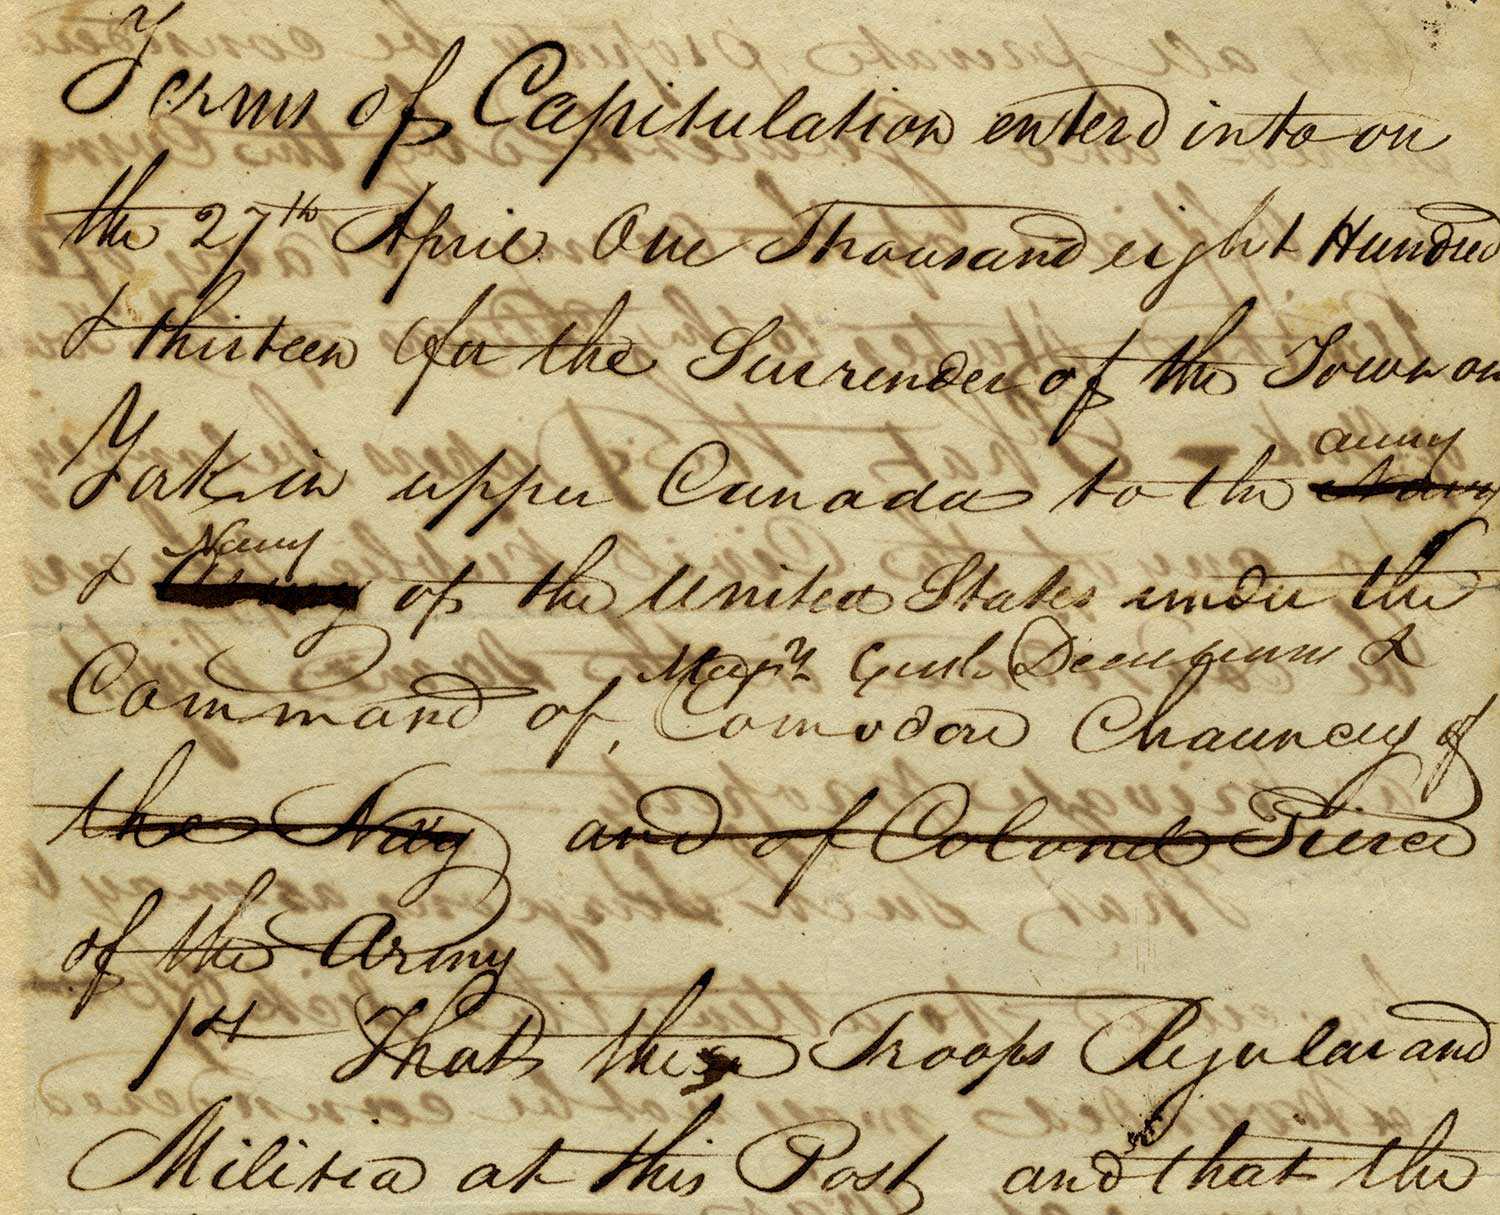 Terms of Capitulation enterd into on
the 27th April One Thousand eight Hundred
& thirteen for the Surrender of the Town on
York in upper Canada to the army Navy
& Navy Army of the United States under the
Majr Genl. Dearborn &
Command of, Comodore Chauncey of
the Navy and of Colonel Pierce
of the Army
1st That the Troops Regular and
Militia at this Post and that the